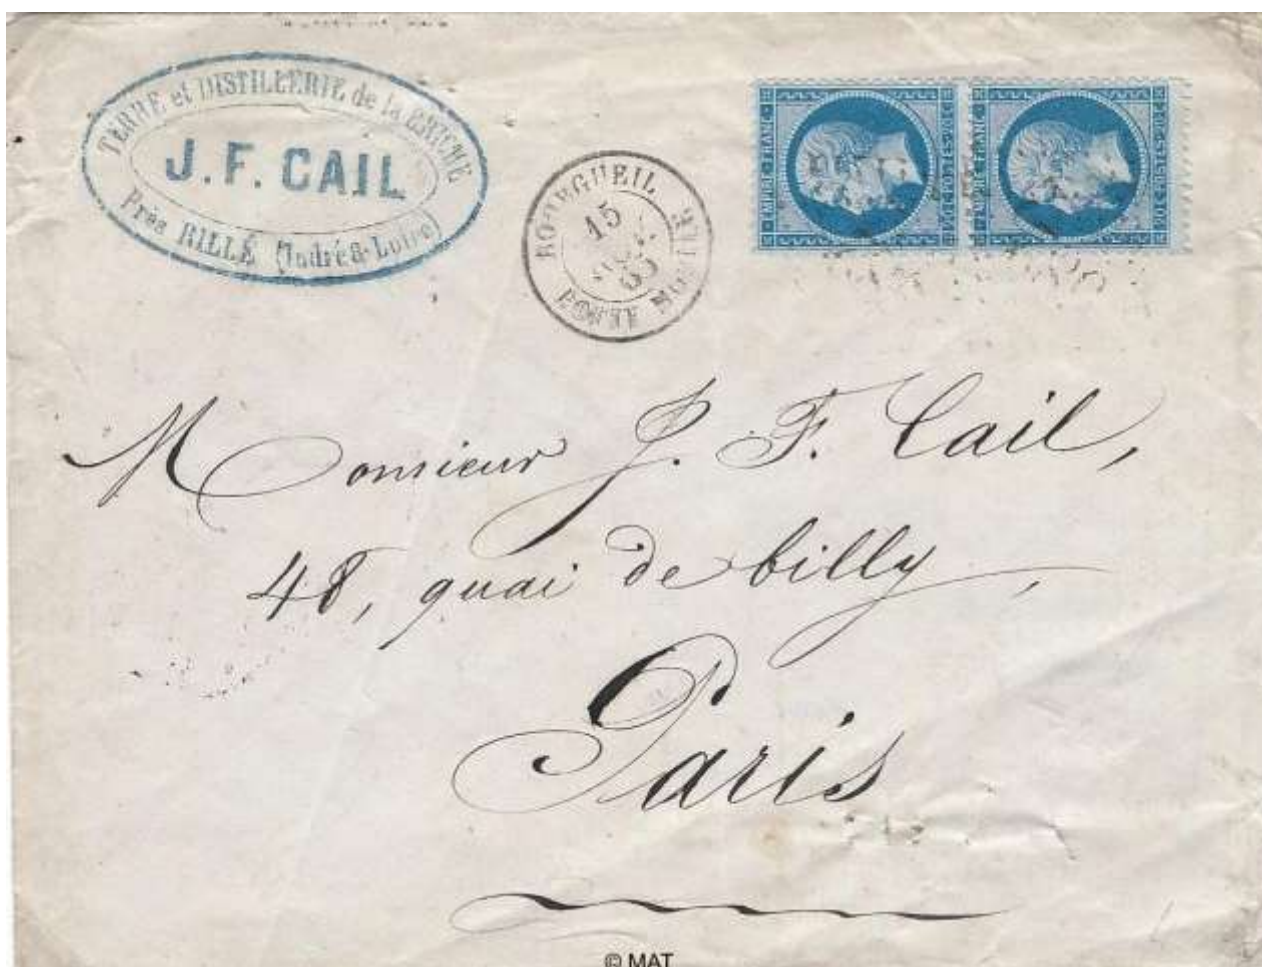 TERRE et DISTILLERIE de la BRICHE
J. F. CAIL
Près RILLÉ (Indre & Loire)
BOURGUEIL
15
POSTE MOBILE
EMPIRE FRANC
20 C POSTES 20 C
EMPIRE FRANC
20 C POSTES 20 C
Monsieur J. F. Cail,
48, quai de billy,
Paris
© MAT